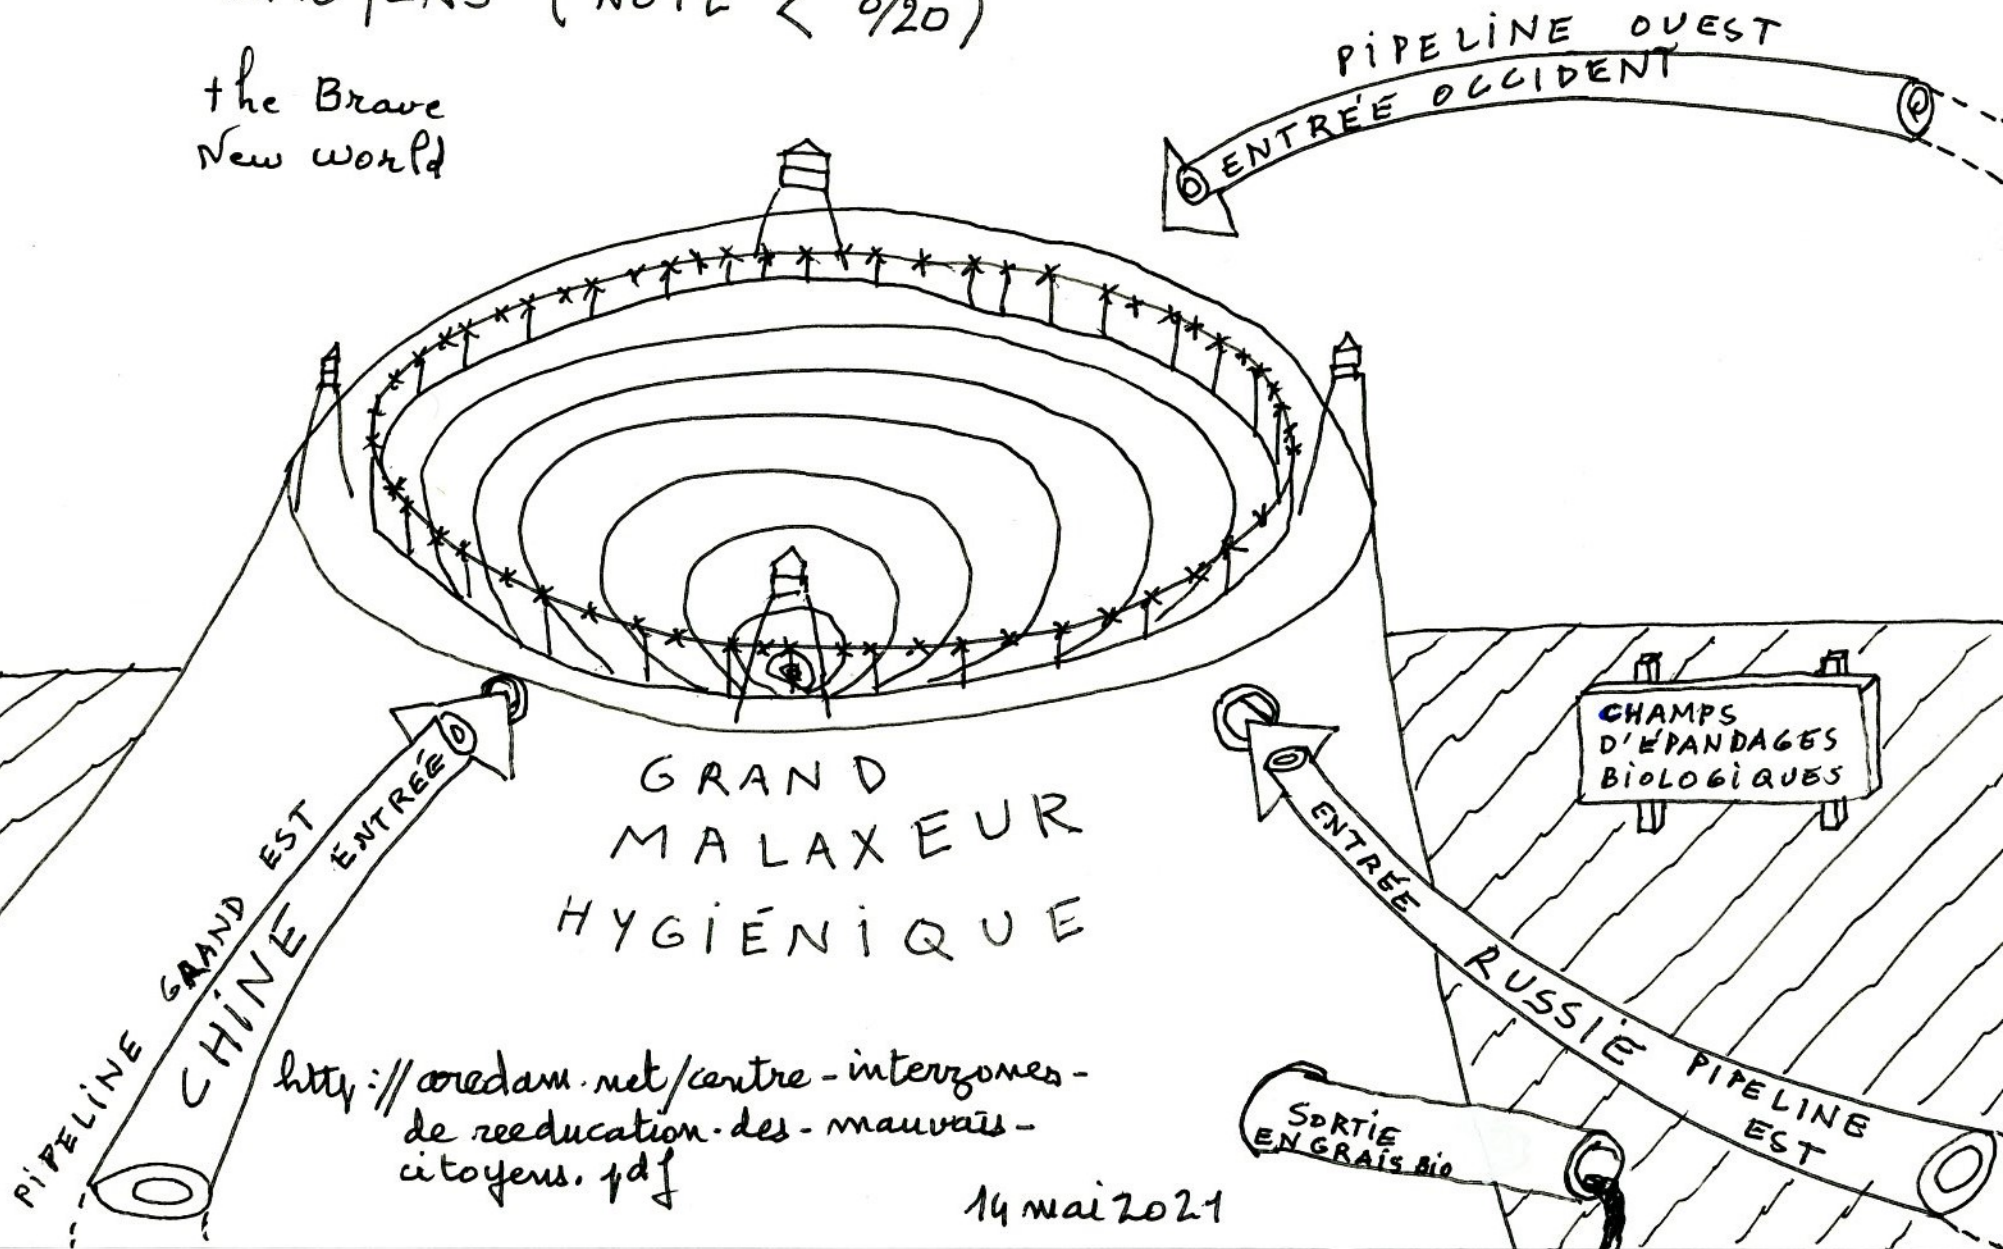 (NOTE < 0/20)
the Brave
New world
PIPELINE OUEST
ENTRÉE OCCIDENT
CHAMPS
D'ÉPANDAGES
BIOLOGIQUES
GRAND
MALAXEUR
HYGIÉNIQUE
PIPELINE GRAND EST
CHINE ENTRÉE
ENTRÉE RUSSIE PIPELINE
EST
http://aredam.net/centre-interzones-
de reeducation.des-mauvais-
citoyens.pdf
SORTIE
ENGRAIS BIO
14 mai 2021